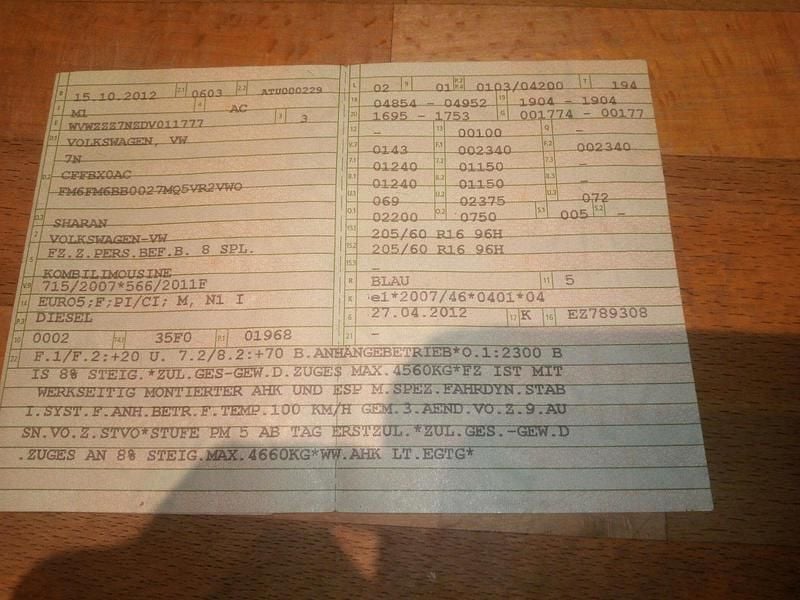 B 15.10.2012 2.1 0603 2.2 ATU000229
J M1 4 AC
E WVWZZZ7NZDV011777 3 3
D.1 VOLKSWAGEN, VW
7N
D.2 CFFBX0AC
FM6FM6BB0027MQ5VR2VWO
D.3 SHARAN
2 VOLKSWAGEN-VW
5 FZ.Z.PERS.BEF.B. 8 SPL.
KOMBILIMOUSINE
V.9 715/2007*566/2011F
14 EURO5;F;PI/CI; M, N1 I
P.3 DIESEL
10 0002 14.1 35F0 P.1 01968
L 02 9 01 P.2 P.4 0103/04200 T 194
18 04854 - 04952 19 1904 - 1904
20 1695 - 1753 G 001774 - 00177
12 - 13 00100 Q -
V.7 0143 F.1 002340 F.2 002340
7.1 01240 7.2 01150 7.3 -
8.1 01240 8.2 01150 8.3 -
U.1 069 U.2 02375 U.3 072
O.1 02200 O.2 0750 S.1 005 S.2 -
15.1 205/60 R16 96H
15.2 205/60 R16 96H
15.3 -
R BLAU 11 5
K e1*2007/46*0401*04
6 27.04.2012 17 K 16 EZ789308
21 -
22 F.1/F.2:+20 U. 7.2/8.2:+70 B.ANHANGEBETRIEB*O.1:2300 B
IS 8% STEIG.*ZUL.GES-GEW.D.ZUGES MAX.4560KG*FZ IST MIT
WERKSEITIG MONTIERTER AHK UND ESP M.SPEZ.FAHRDYN.STAB
I.SYST.F.ANH.BETR.F.TEMP.100 KM/H GEM.3.AEND.VO.Z.9.AU
SN.VO.Z.STVO*STUFE PM 5 AB TAG ERSTZUL.*ZUL.GES.-GEW.D
.ZUGES AN 8% STEIG.MAX.4660KG*WW.AHK LT.EGTG*